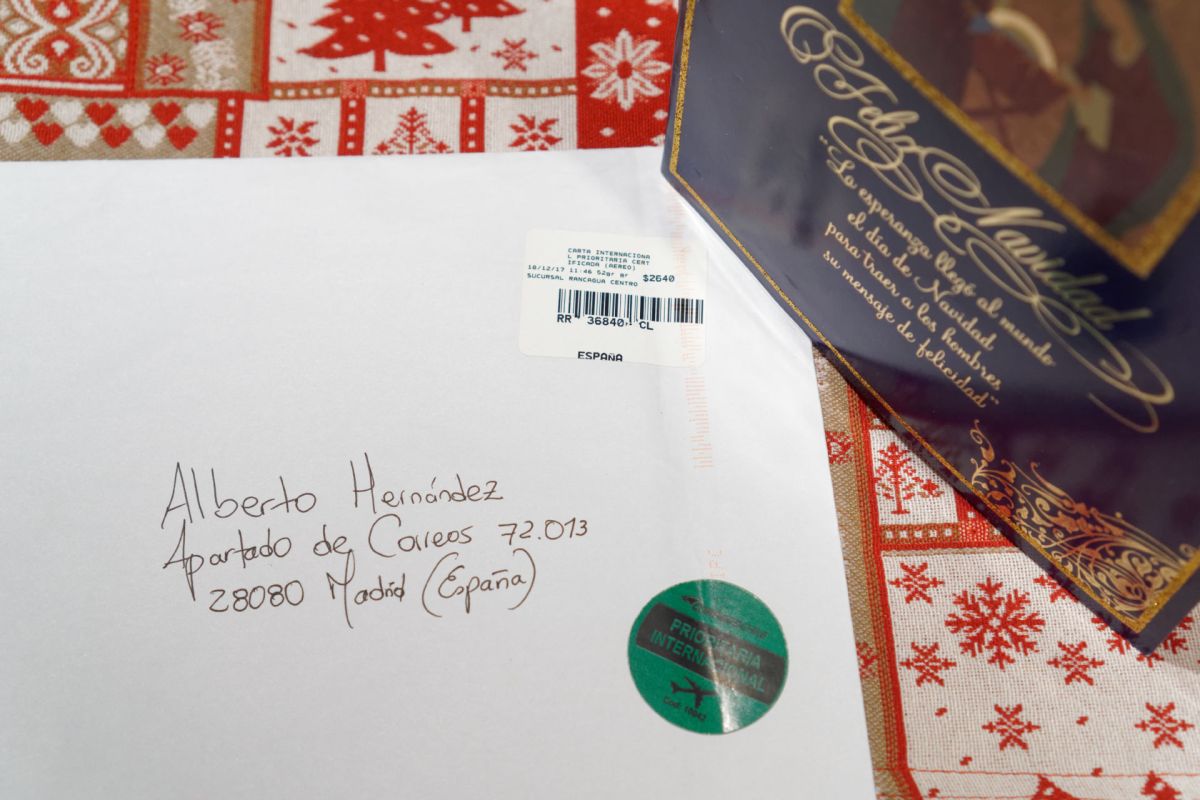 Feliz Navidad
"La esperanza llegó al mundo
el día de Navidad
para traer a los hombres
su mensaje de felicidad"
CARTA INTERNACIONA
L PRIORITARIA CERT
IFICADA (AEREO)
18/12/17 11:46 52gr ar $2640
SUCURSAL RANCAGUA CENTRO
RR 36840 CL
ESPAÑA
Alberto Hernández
Apartado de Correos 72.013
28080 Madrid (España)
PRIORITARIA
INTERNACIONAL
Cod: 10042